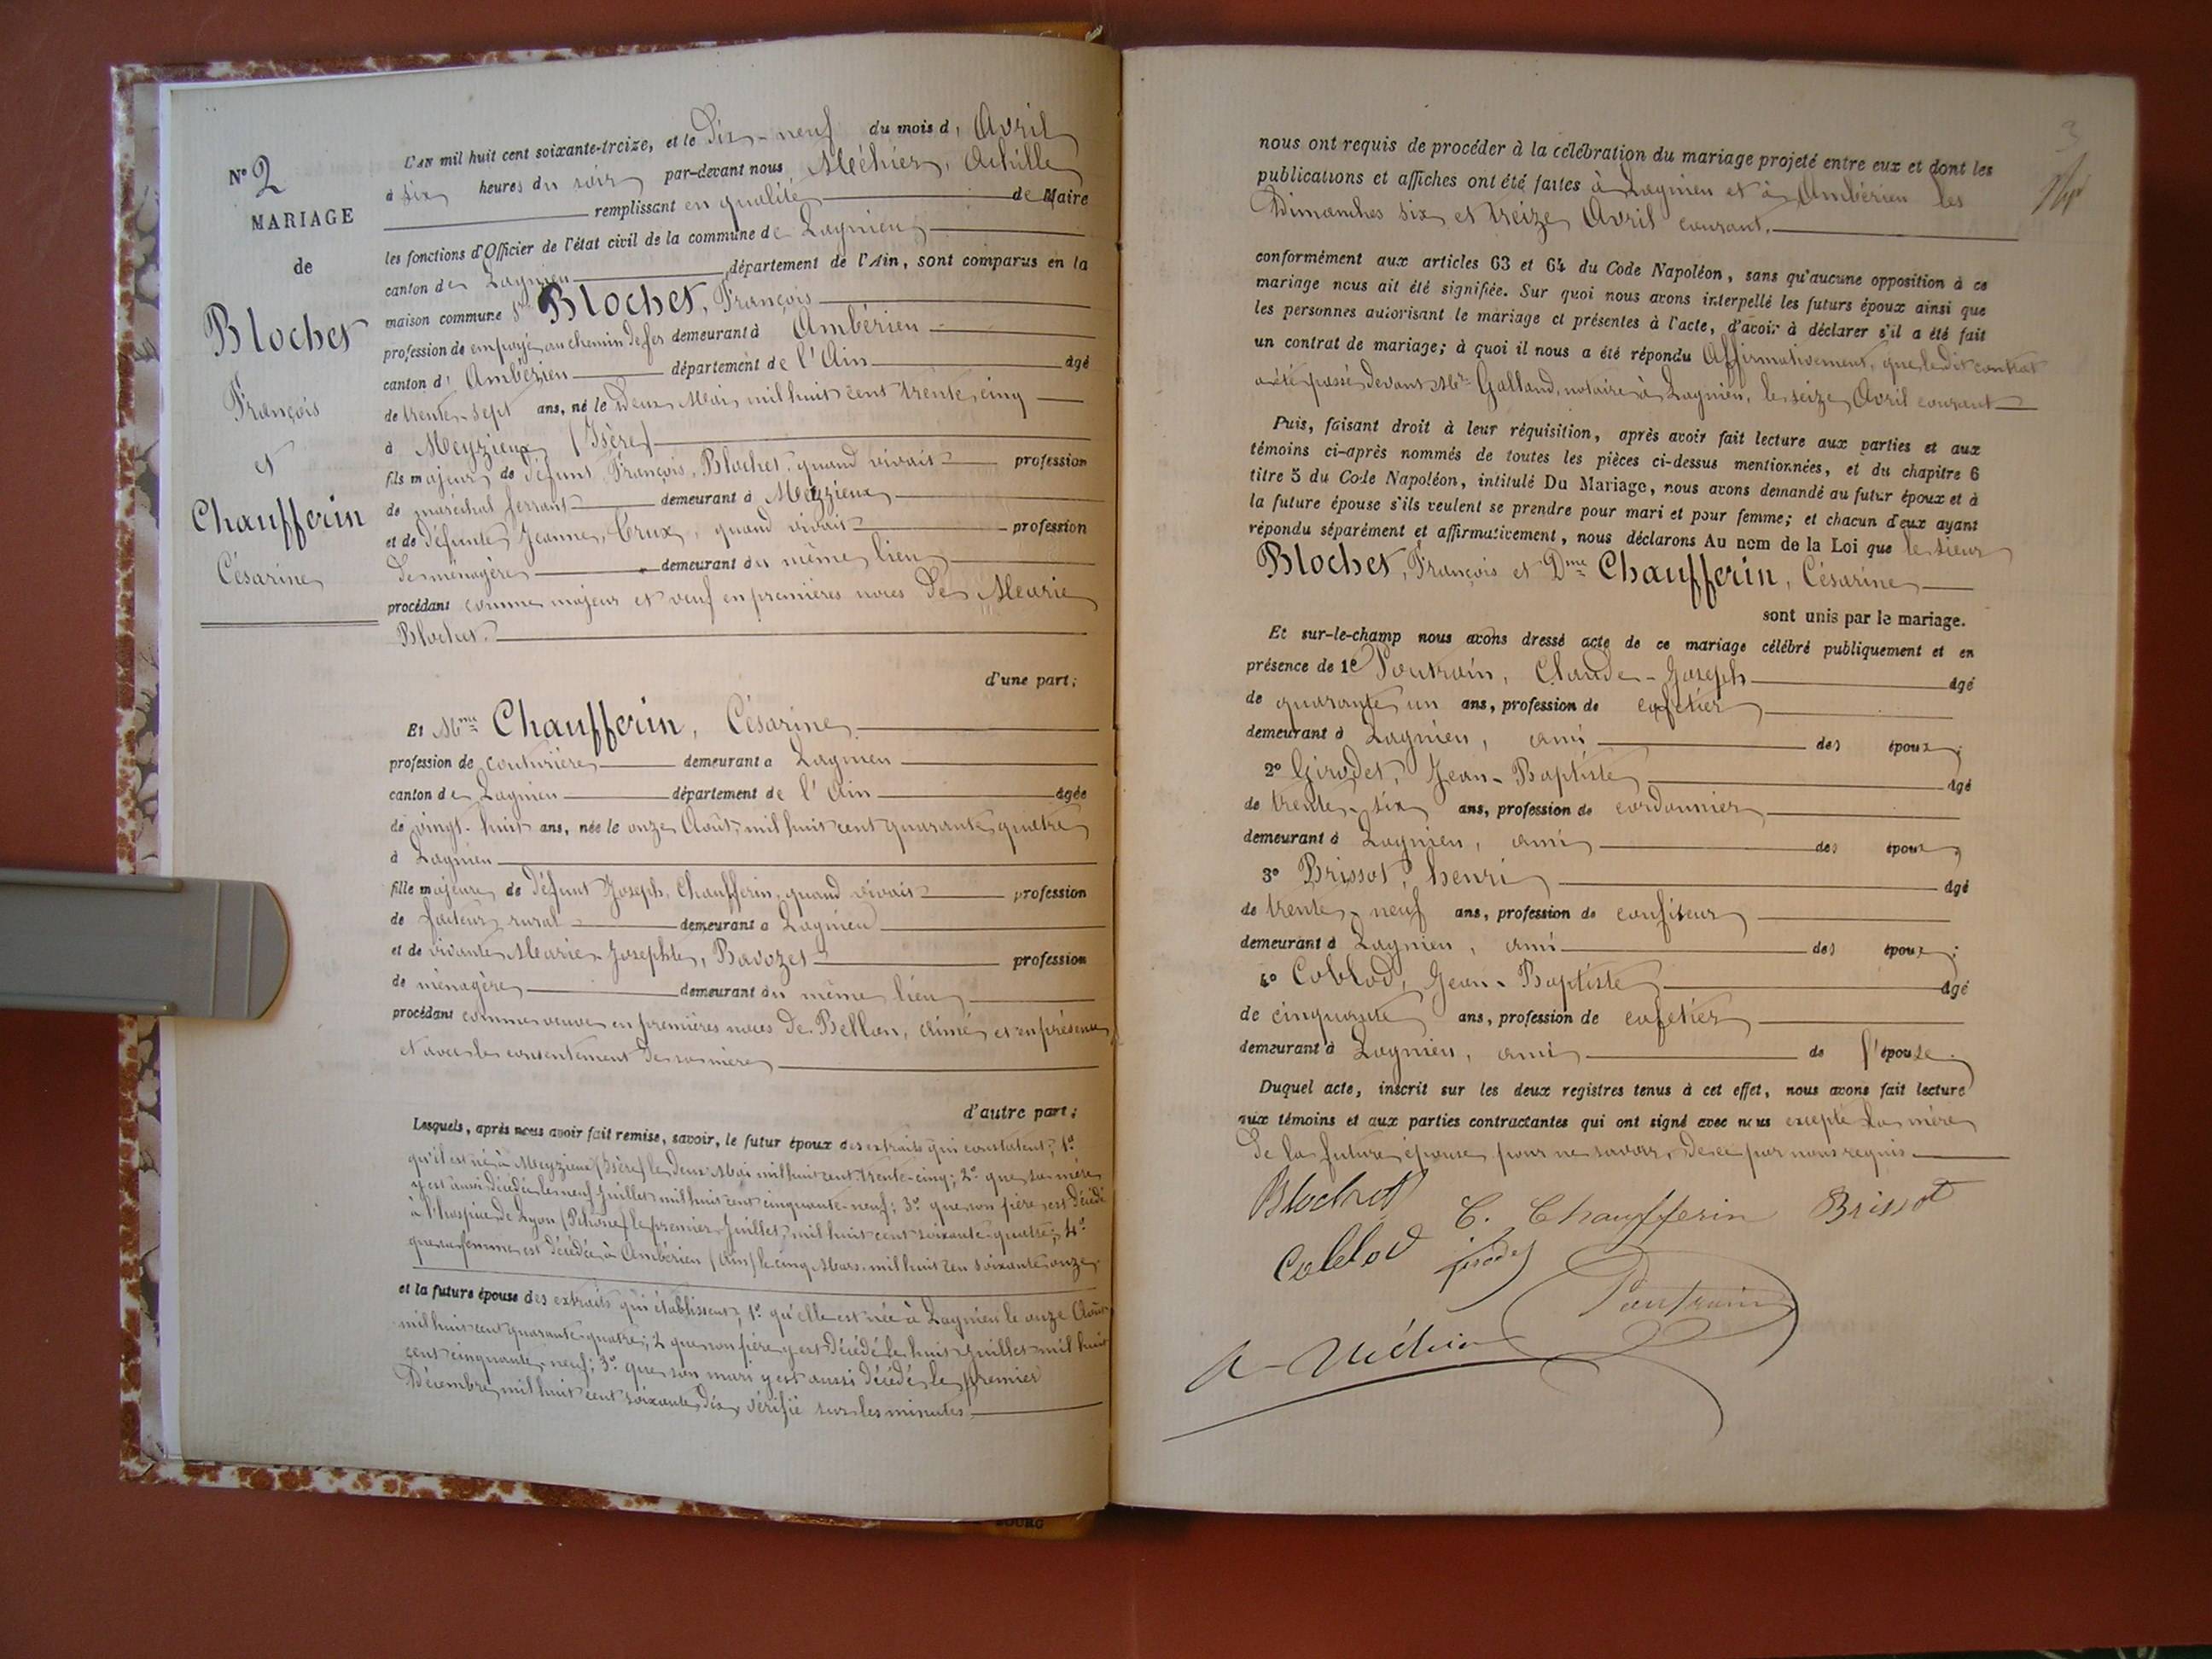 N° 2
MARIAGE
de
Blochet
François
et
Chaufferin
Césarine
L'AN mil huit cent soixante-treize, et le Dix-neuf du mois d' Avril
à six heures du soir par-devant nous Méhier, Achille
remplissant en qualité de Maire
les fonctions d'Officier de l'état civil de la commune de Lagnieu
canton de Lagnieu département de l'Ain, sont comparus en la
maison commune Sr Blochet, François
profession de employé au chemin de fer demeurant à Ambérieu
canton d' Ambérieu département de l'Ain âgé
de trente-sept ans, né le Deux Mai mil huit cent trente cinq
à Meyzieux (Isère)
fils majeur de défunt François, Blochet, quand vivait profession
de maréchal ferrant demeurant à Meyzieux
et de défunte Jeanne, Crux, quand vivait profession
De ménagère demeurant du même lieu
procédant comme majeur et veuf en premières noces De Marie
Blochet.
d'une part;
Et Mme Chaufferin, Césarine
profession de couturière demeurant à Lagnieu
canton de Lagnieu département de l'Ain âgée
de vingt-huit ans, née le onze Août, mil huit cent quarante quatre
à Lagnieu
fille majeure de défunt Joseph, Chaufferin, quand vivait profession
de facteur rural demeurant à Lagnieu
et de vivante Marie-Josephte, Bavozet profession
de ménagère demeurant du même lieu
procédant comme veuve en premières noces De Bellon, Aimé et en présence
et avec le consentement De sa mère
d'autre part;
Lesquels, après nous avoir fait remise, savoir, le futur époux des extraits qui constatent, 1°
qu'il est né à Meyzieux (Isère) le Deux Mai mil huit cent trente-cinq; 2° que sa mère
y est aussi décédée le neuf Juillet mil huit cent cinquante-neuf; 3° que son père est décédé
à l'hospice de Lyon (Rhône) le premier Juillet, mil huit cent soixante-quatre; 4°
que sa femme est décédée à Ambérieu (Ain) le cinq Mars mil huit cen soixante onze.
et la future épouse des extraits qui établissent, 1° qu'elle est née à Lagnieu le onze Août
mil huit cent quarante-quatre; 2 que son père y est Décédé le huit Juillet mil huit
cent cinquante-neuf; 3° que son mari y est aussi Décédé le premier
Décembre mil huit cent soixante Dix, vérifié sur les minutes
3
nous ont requis de procéder à la célébration du mariage projeté entre eux et dont les
publications et affiches ont été faites à Lagnieu et à Ambérieu les
Dimanches six et treize Avril courant.
conformément aux articles 63 et 64 du Code Napoléon, sans qu'aucune opposition à ce
mariage nous ait été signifiée. Sur quoi nous avons interpellé les futurs époux ainsi que
les personnes autorisant le mariage et présentes à l'acte, d'avoir à déclarer s'il a été fait
un contrat de mariage; à quoi il nous a été répondu Affirmativement, que le dit contrat
a été passé devant Mtre Galland, notaire à Lagnieu, le seize Avril courant
Puis, faisant droit à leur réquisition, après avoir fait lecture aux parties et aux
témoins ci-après nommés de toutes les pièces ci-dessus mentionnées, et du chapitre 6
titre 5 du Code Napoléon, intitulé Du Mariage, nous avons demandé au futur époux et à
la future épouse s'ils veulent se prendre pour mari et pour femme; et chacun d'eux ayant
répondu séparément et affirmativement, nous déclarons Au nom de la Loi que le sieur
Blochet, François et Dme Chaufferin, Césarine
sont unis par le mariage.
Et sur-le-champ nous avons dressé acte de ce mariage célébré publiquement et en
présence de 1° Poutrain, Claude-Joseph âgé
de quarante un ans, profession de cafetier
demeurant à Lagnieu, ami des époux;
2° Girodet, Jean-Baptiste âgé
de trente-six ans, profession de cordonnier
demeurant à Lagnieu, ami des époux;
3° Brissot, henri âgé
de trente-neuf ans, profession de confiseur
demeurant à Lagnieu, ami des époux;
4° Coblod, Jean-Baptiste âgé
de cinquante ans, profession de cafetier
demeurant à Lagnieu, ami de l'épouse.
Duquel acte, inscrit sur les deux registres tenus à cet effet, nous avons fait lecture
aux témoins et aux parties contractantes qui ont signé avec nous excepté la mère
De la future épouse pour ne savoir, De ce par nous requis.
Blochet C. Chaufferin Brissot
Coblod
Poutrain
A. Méhier
BOURG